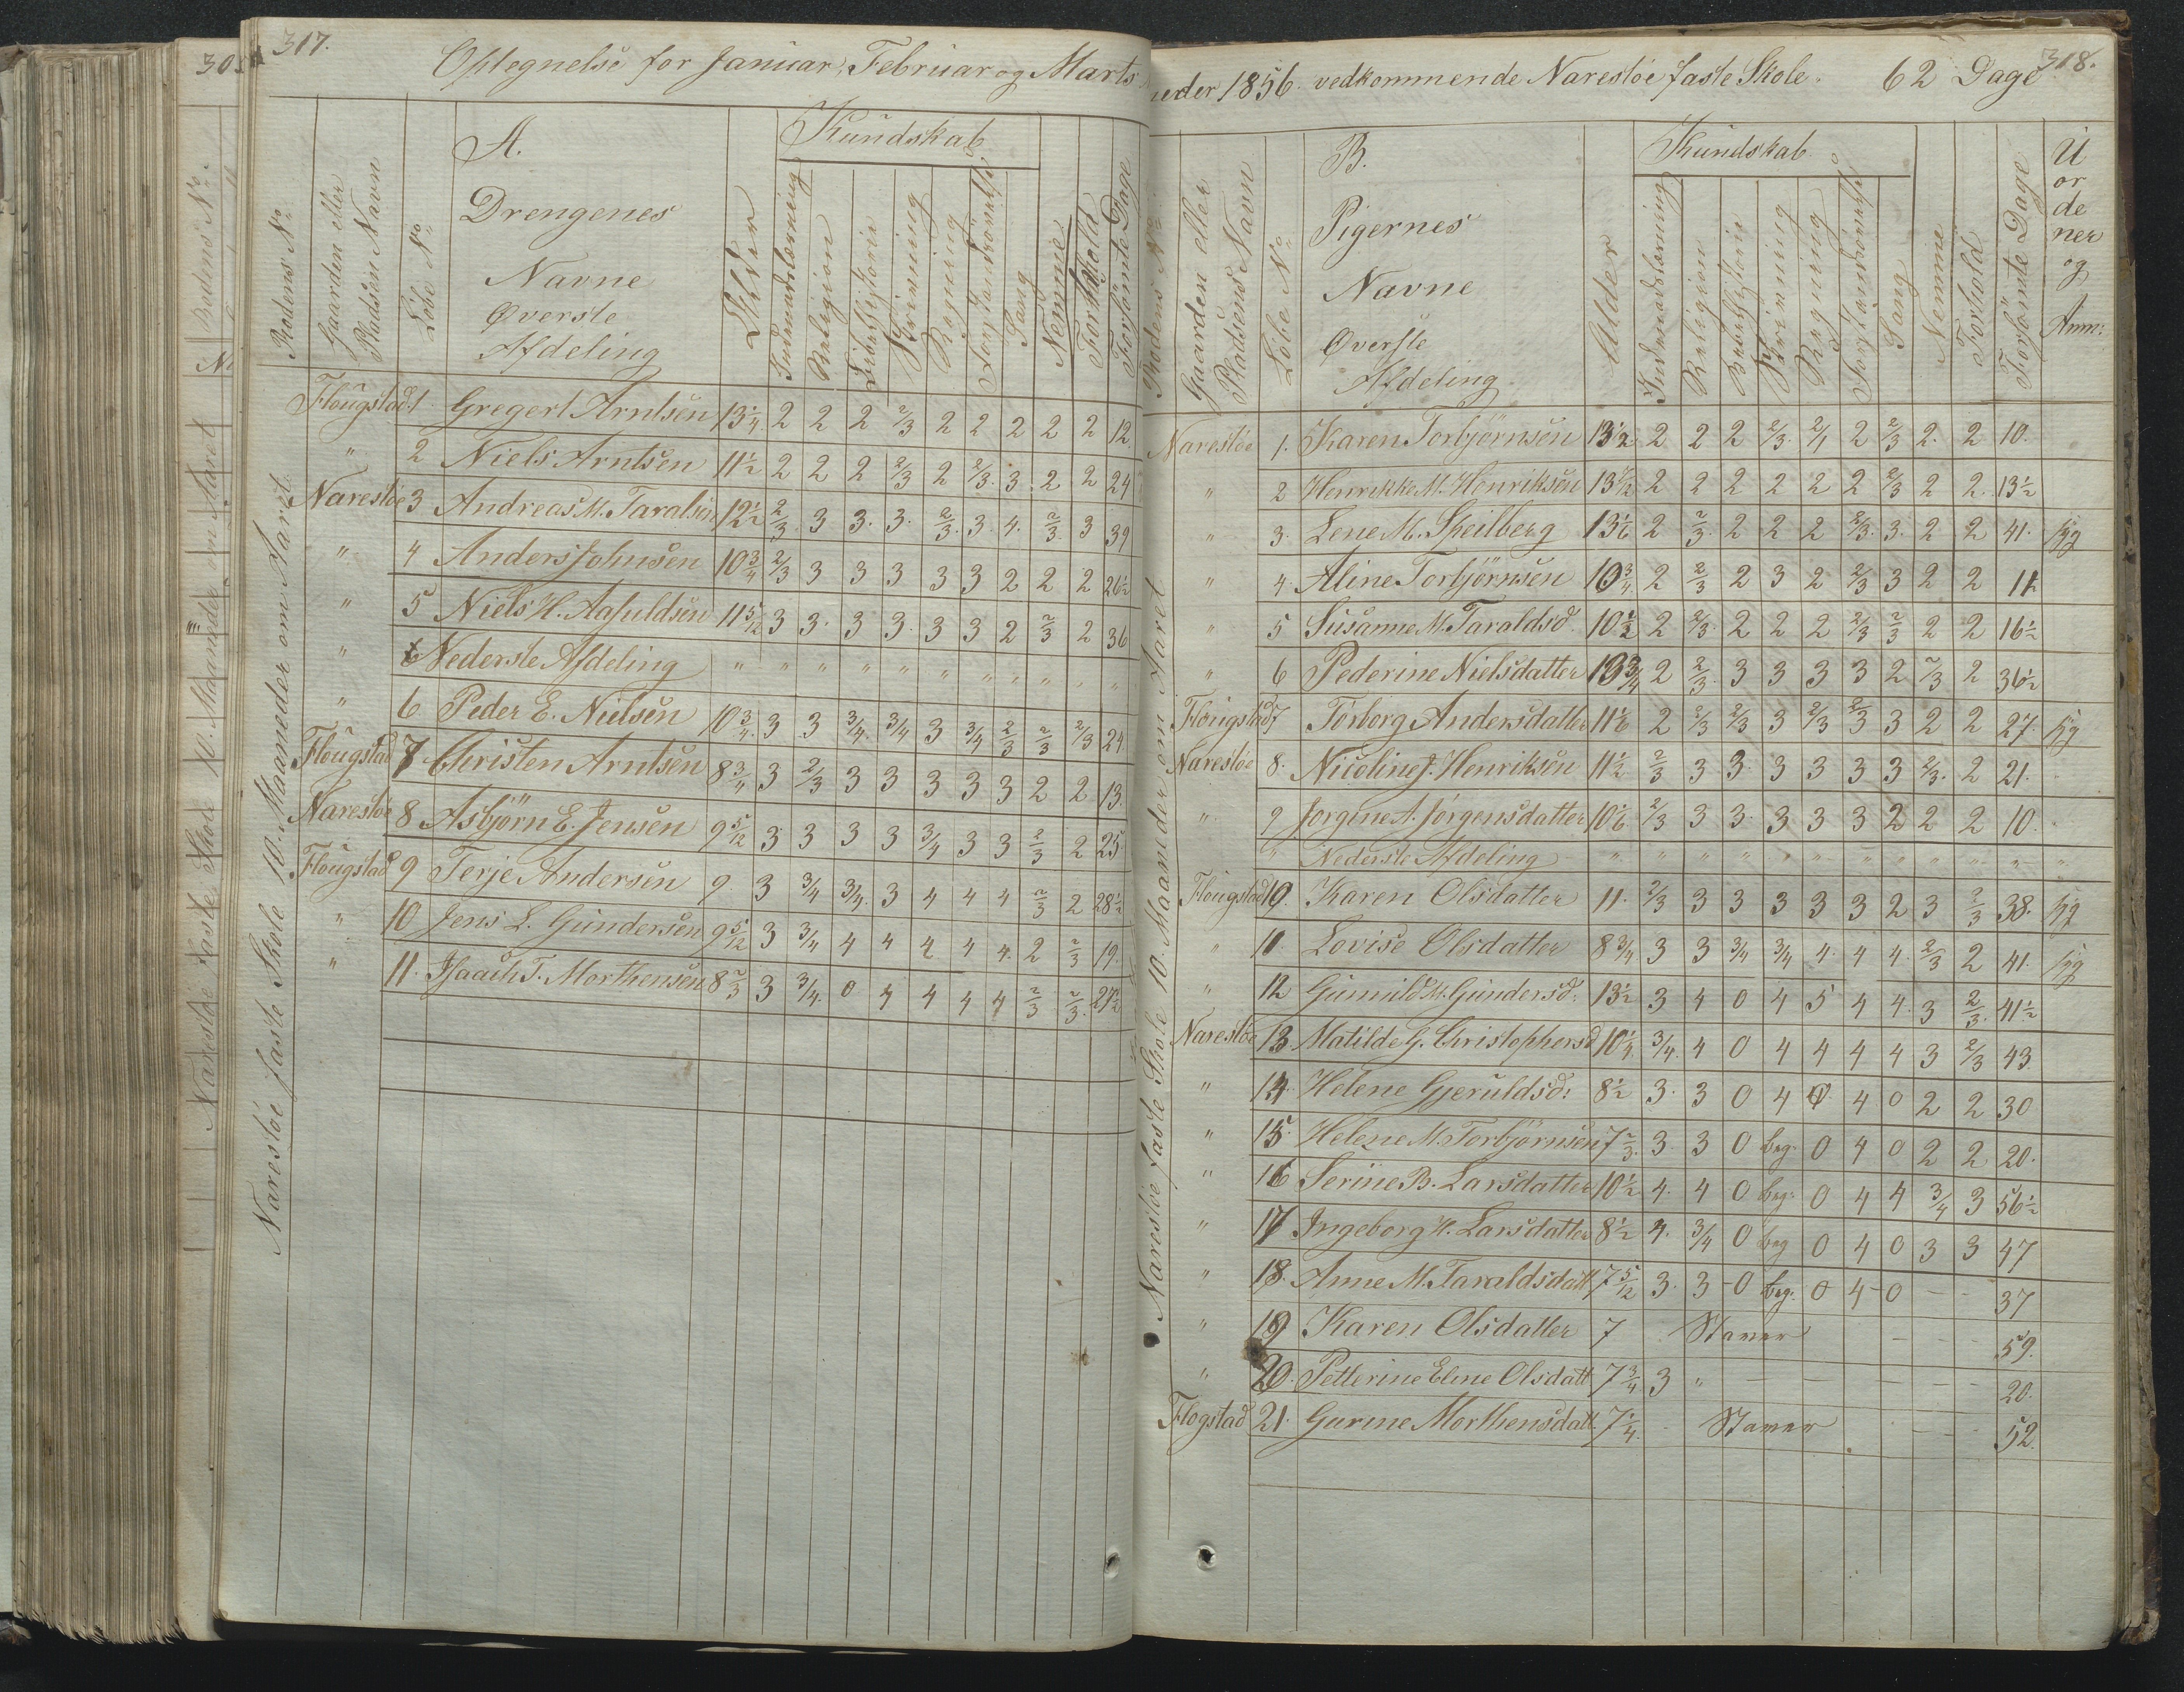 317.
Optegnelse for Januar, Februar og Marts
Rodens No
Gaarden eller Pladsen Navn
Löbe No
A.
Drengenes
Navne
Øverste
Afdeling
Alder
Kundskab
Indenadslæsning
Religion
Bibelhistorie
Skrivning
Regning
Forstandsövelse
Sang
Nemme
Forhold
Forsömte Dage
Narestöe faste Skole 10. Maaneder om Aaret
Flougstad 1 Gregert Arntsen 13 1/4 2 2 2 2/3 2 2 2 2 2 12.
" 2 Niels Arntsen 11 1/2 2 2 2 2/3 2 2/3. 3. 2 2 24
Narestöe 3 Andreas M. Taraldsen 12 1/2 2/3 3 3. 3. 2/3. 3. 4. 2/3. 3 39
" 4 Anders Johnsen 10 3/4 2/3 3 3 3 3 3 2 2 2 26 1/2
" 5 Niels H. Aasuldsen 11 5/12 3 3. 3 3. 3 3 2 2/3 2 36
" Nederste Afdeling " " " " " " " " " " "
" 6 Peder E. Nielsen 10 3/4. 3 3 3/4. 3/4 3 3/4 2/3 2/3 2/3 24.
Flougstad 7 Christen Arntsen 8 3/4 3 2/3 3 3 3 3 3 2 2 13.
Narestöe 8 Asbjörn E. Jensen 9 5/12 3 3 3 3 3/4 3 3 2/3 2 25.
Flougstad 9 Terje Andersen 9 3 3/4 3/4. 3 4 4 4 2/3 2 28 1/2
" 10 Jens L. Gundersen 9 5/12 3 3/4 4 4 4 4 4. 2 2/3 19.
" 11. Isaach T. Morthensen 8 2/3 3 3/4. 0 4 4 4 4 2/3 2/3. 27 1/2
318.
neder 1856. vedkommende Narestöe faste Skole. 62 Dage
Rodens No
Gaarden eller Pladsens Navn
Löbe No
B.
Pigernes
Navne
Øverste
Afdeling
Alder
Kundskab
Indenadslæsning
Religion
Bibelhistorie
Skrivning
Regning
Forstandsövelse
Sang
Nemme
Forhold
Forsömte Dage
U
or
de
ner
og
Anm:
Narestöe faste Skole 10. Maaneder om Aaret
Narestöe 1. Karen Torbjörnsen 13 1/2 2 2 2 2/3. 2/1 2 2/3 2. 2 10.
" 2 Henrikke M. Henriksen 13 1/12 2 2 2 2 2 2 2/3 2 2. 13 1/2
" 3. Lene M. Speilberg 13 1/6 2 2/3. 2 2 2 2/3. 3. 2 2 41. syg
" 4. Aline Torbjörnsen 10 3/4. 2 2/3 2 3 2 2/3 3 2 2 11
" 5 Susanne M. Taraldsd. 10 1/2 2 2/3. 2 2 2 2/3 2/3 2 2 16 1/2
" 6 Pederine Nielsdatter 13 3/4 2 2/3. 3 3 3 3 2 2/3 2 36 1/2
Flougstad 7 Torborg Andersdatter 11 1/6 2 2/3 2/3 3 2/3 2/3 3 2 2 27. syg
Narestöe 8. Nicoline J. Henriksen 11 1/2 2/3 3 3. 3 3 3 3 2/3. 2 21.
" 9 Jorgine A. Jörgensdatter 10 1/6 2/3 3 3. 3 3 3 2 2 2 10.
" Nederste Afdeling " " " " " " " " " " " "
Flougstad 10. Karen Olsdatter 11. 2/3 3 3 3 3 3 2 3 2/3 38. syg
" 11 Lovise Olsdatter 8 3/4 3 3 3/4 3/4 4. 4 4. 2/3 2 41. syg
" 12 Gunnild M. Gundersd. 13 1/2 3 4 0 4 5 4 4. 3 2/3. 41 1/2
Narestöe 13. Matilde G. Christophersd 10 1/4. 3/4. 4 0 4 4 4 4 3 2/3 43.
" 14. Helene Gjeruldsd: 8 1/2 3. 3 0 4 0 4 0 2 2 30
" 15. Helene M. Torbjörnsen 7 2/3. 3 3 0 beg. 0 4 0 2 2 20.
" 16 Serine B. Larsdatter 10 1/2 4. 4 0 beg. 0 4 4 3/4 3 56 1/2
" 17 Ingeborg H. Larsdatter 8 1/2 4. 3/4 0 beg 0 4 0 3 3 47
" 18. Anne M. Taraldsdatt 7 5/12 3. 3 - 0 beg. 0 4 - 0 - - 37
" 19 Karen Olsdatter 7 Staver - - - 59.
" 20. Petterine Eline Olsdatt 7 3/4. 3 " - - - - - - - 20.
Flogstad 21. Gurine Morthensdatt 7 1/4. - Staver - - 52.